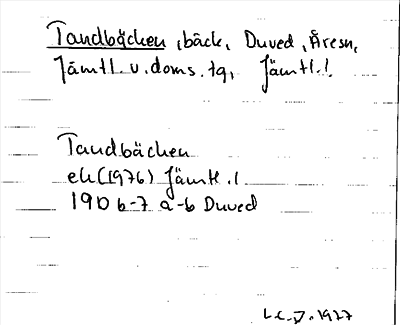 Tandbäcken, bäck, Duved, Åresn,
Jämtl. v. doms. tg, Jämtl. l.
Tandbäcken
ek (1976) Jämtl. l
19D 6-7 a-b Duved
1977